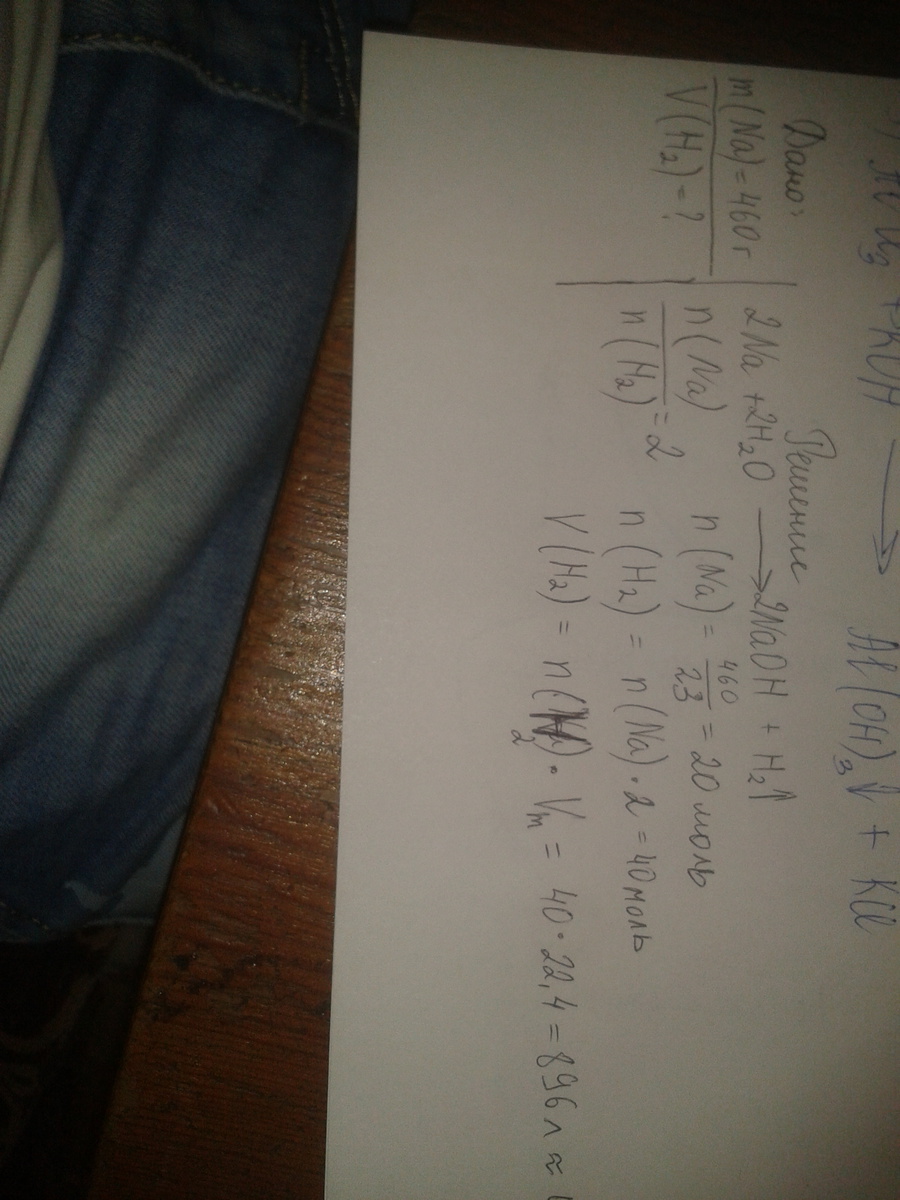 AlCl₃ + KOH → Al(OH)₃↓ + KCl
Дано:
m(Na) = 460 г
V(H₂) = ?
Решение
2Na + 2H₂O → 2NaOH + H₂↑
n(Na) / n(H₂) = 2
n(Na) = 460/23 = 20 моль
n(H₂) = n(Na) · 2 = 40 моль
V(H₂) = n(H₂) · Vm = 40 · 22,4 = 896 л ≈